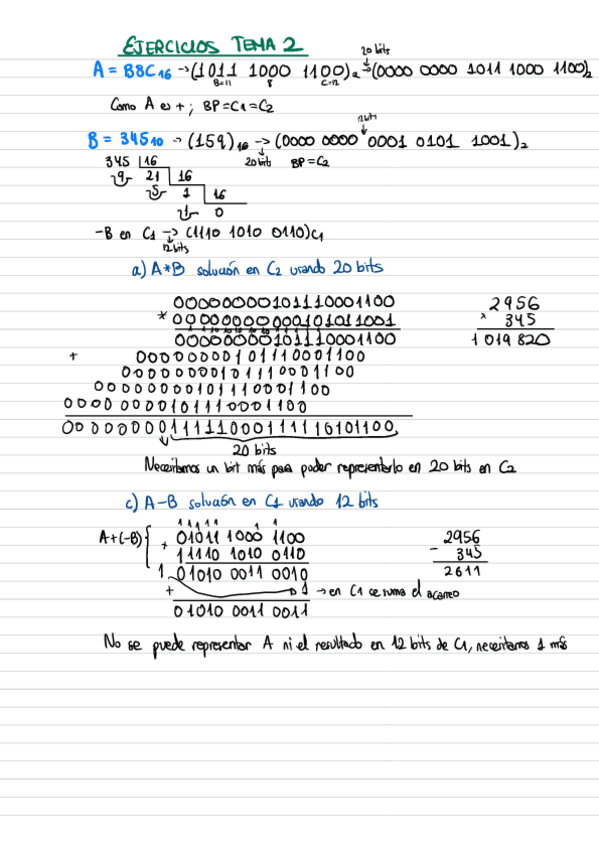 EJERCICIOS TEMA 2
20 bits
A = B8C16 → (1011 1000 1100)2 → (0000 0000 1011 1000 1100)2
B=11 8 C=12
Como A es + ; BP=C1=C2
12 bits
B = 34510 → (159)16 → (0000 0000 0001 0101 1001)2
345 16 20 bits BP=C2
9 21 16
5 1 16
1 0
-B en C1 → (1110 1010 0110)C1
12 bits
a) A*B solución en C2 usando 20 bits
00000000101110001100 2956
* 00000000000101011001 x 345
00000000101110001100 1019820
+ 00000000101110001100
00000000101110001100
00000000101110001100
0000 0000101110001100
00 000000011111000111110101100
20 bits
Necesitamos un bit más para poder representarlo en 20 bits en C2
c) A-B solución en C1 usando 12 bits
11111 1 1
A+(-B) + 01011 1000 1100 2956
11110 1010 0110 - 345
1 01010 0011 0010 2611
+ 01 → en C1 se suma el acarreo
01010 0011 0011
No se puede representar A ni el resultado en 12 bits de C1, necesitamos 1 más